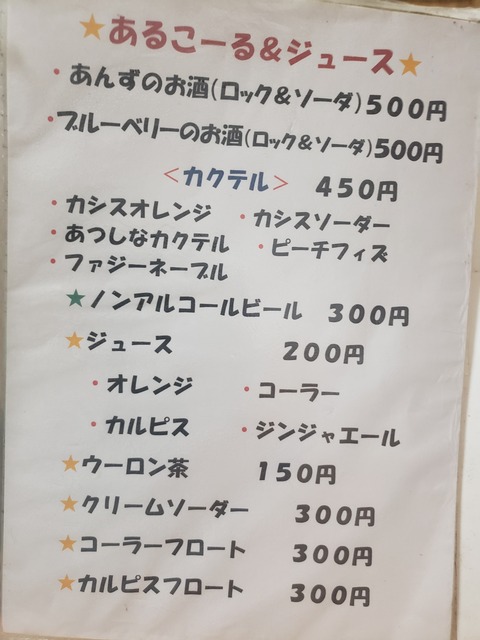 ★あるこーる&ジュース★
・あんずのお酒(ロック&ソーダ)500円
・ブルーベリーのお酒(ロック&ソーダ)500円
<カクテル> 450円
・カシスオレンジ ・カシスソーダー
・あつしなカクテル ・ピーチフィズ
・ファジーネーブル
★ノンアルコールビール 300円
★ジュース 200円
・オレンジ ・コーラー
・カルピス ・ジンジャエール
★ウーロン茶 150円
★クリームソーダー 300円
★コーラーフロート 300円
★カルピスフロート 300円